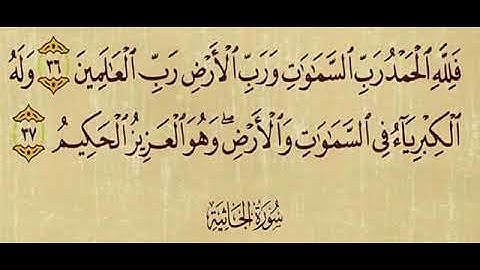 فَلِلَّهِ ٱلۡحَمۡدُ رَبِّ ٱلسَّمَٰوَٰتِ وَرَبِّ ٱلۡأَرۡضِ رَبِّ ٱلۡعَٰلَمِينَ ٣٦ وَلَهُ
ٱلۡكِبۡرِيَآءُ فِي ٱلسَّمَٰوَٰتِ وَٱلۡأَرۡضِۖ وَهُوَ ٱلۡعَزِيزُ ٱلۡحَكِيمُ ٣٧
سُورَةُ الجَاثِيَةِ